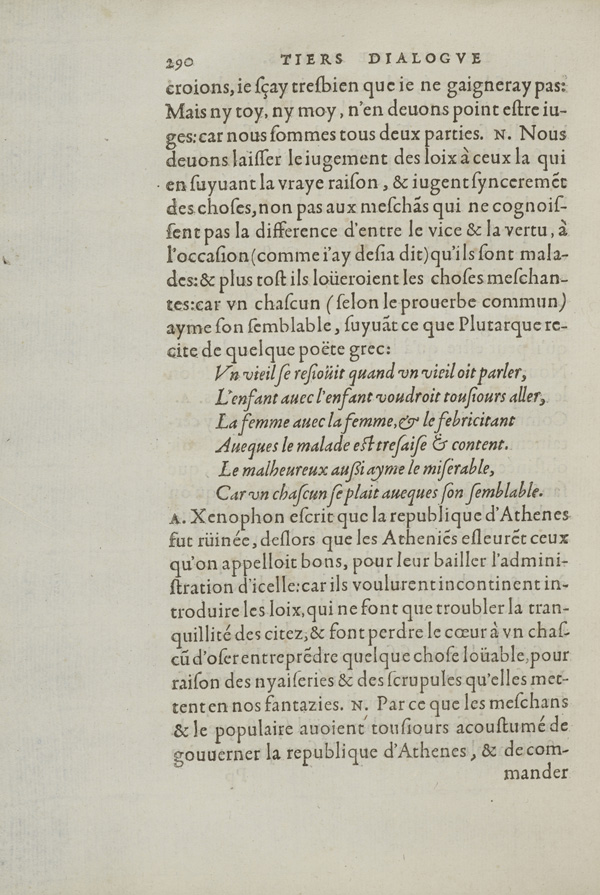 290 TIERS DIALOGVE
croions, ie ſçay treſbien que ie ne gaigneray pas:
Mais ny toy, ny moy, n'en deuons point eſtre iu-
ges: car nous ſommes tous deux parties. N. Nous
deuons laiſſer le iugement des loix à ceux la qui
en ſuyuant la vraye raiſon, & iugent ſynceremẽt
des choſes, non pas aux meſchãs qui ne cognoiſ-
ſent pas la difference d'entre le vice & la vertu, à
l'occaſion (comme i'ay deſia dit) qu'ils ſont mala-
des: & plus toſt ils loüeroient les choſes meſchan-
tes: car vn chaſcun (ſelon le prouerbe commun)
ayme ſon ſemblable, ſuyuãt ce que Plutarque re-
cite de quelque poëte grec:
Vn vieil ſe reſioüit quand vn vieil oit parler,
L'enfant auec l'enfant voudroit touſiours aller,
La femme auec la femme, & le febricitant
Aueques le malade eſt treſaiſe & content.
Le malheureux auſſi ayme le miſerable,
Car vn chaſcun ſe plait aueques ſon ſemblable.
A. Xenophon eſcrit que la republique d'Athenes
fut rüinée, deſlors que les Atheniẽs eſleurẽt ceux
qu'on appelloit bons, pour leur bailler l'admini-
ſtration d'icelle: car ils voulurent incontinent in-
troduire les loix, qui ne font que troubler la tran-
quillité des citez, & font perdre le cœur à vn chaſ-
cũ d'oſer entreprẽdre quelque choſe loüable, pour
raiſon des nyaiſeries & des ſcrupules qu'elles met-
tent en nos fantazies. N. Par ce que les meſchans
& le populaire auoient touſiours acouſtumé de
gouuerner la republique d'Athenes, & de com-
mander